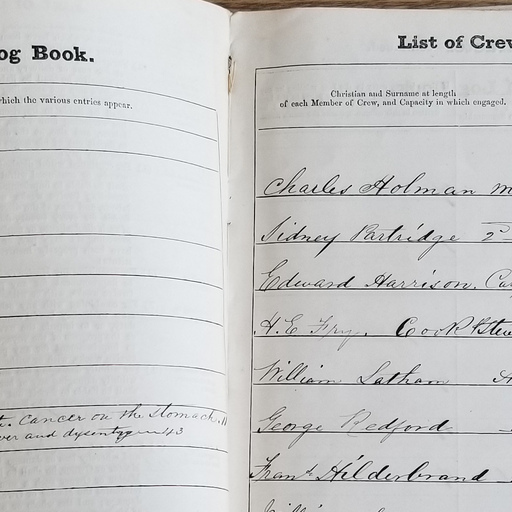 og Book.
which the various entries appear.
Cancer on the Stomach. 11
ver and dysentery 43
List of Crew
Christian and Surname at length
of each Member of Crew, and Capacity in which engaged.
Charles Holman M
Sidney Partridge 2
Edward Harrison. Ca
H.E. Fry. Cook & Stew
William Latham A
George Redford
Frank Hilderbrand